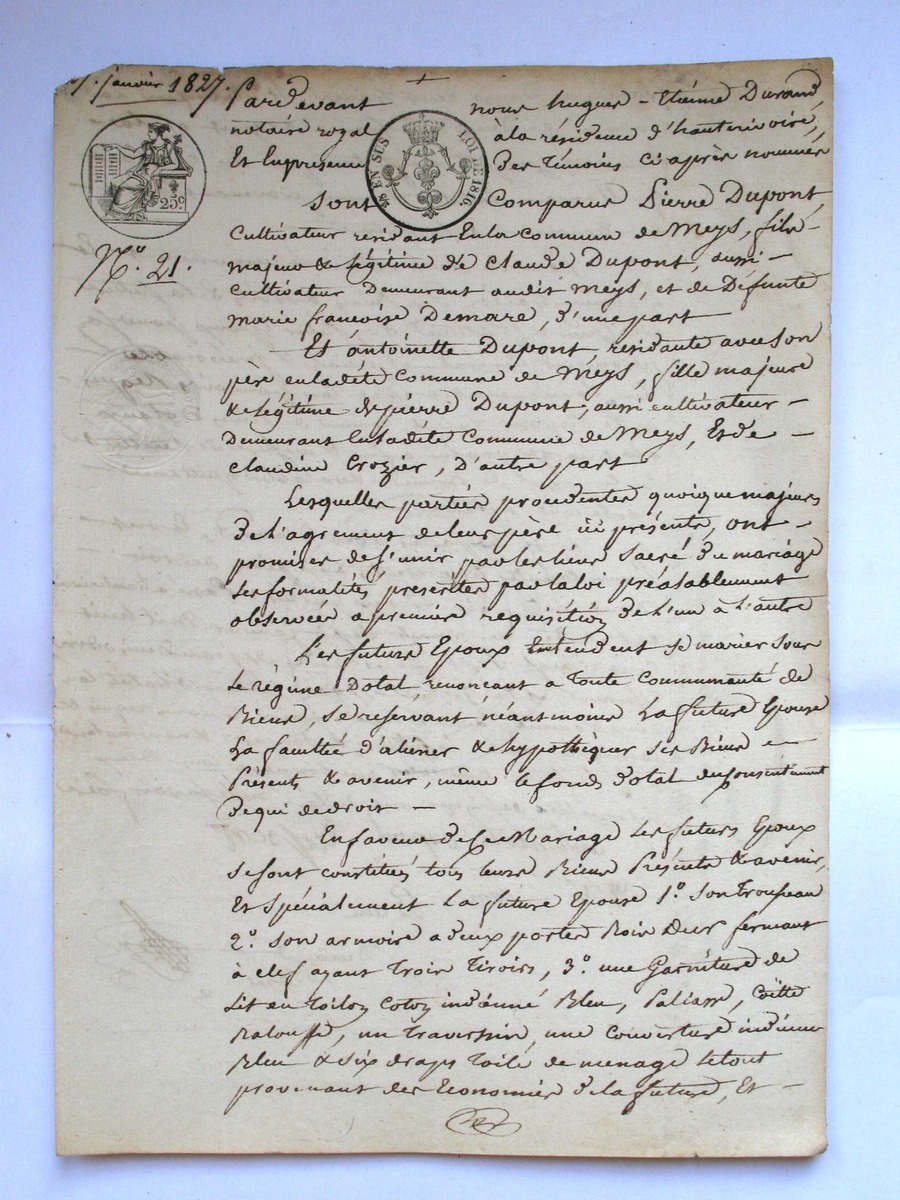 janvier 1827.
Pardevant nous hugues - Etienne Durand
notaire royal à la résidence d'hauterivoire,
Et En presence Des Témoins Ci après nommés
25c
EN SUS
LOI DE 1816.
N.o 21.
Sont Comparus Pierre Dupont,
Cultivateur residant En la Commune de Meys, fils
majeur & légitime de Claude Dupont, aussi
cultivateur Demeurant audit Meys, et de Défunte
marie francoise Demare, d'une part
Et antoinette Dupont, residante avec son
père en ladite Commune de Meys, fille majeure
& légitime de pierre Dupont, aussi cultivateur
Demeurant En ladite Commune de Meys, Et de
Claudine Crozier, D'autre part
Lesquelles parties procedentes quoique majeurs
de L'agrement de leur père ici présents, ont
promises de s'unir par les liens Sacré du mariage
Les formalités prescrites par la loi préalablement
observées a première requisition de L'un à L'autre
Les futurs Epoux Entendent se marier sous
Le régime Dotal renoncant a Toute Communauté de
Biens, se reservant néantmoins La future Epouse
La faculté d'aliéner & hypothéquer ses Biens
Présents & avenir, même le fonds Dotal du consentement
De qui de droit
En faveur de Ce Mariage Les futurs Epoux
se sont constitués tous leurs Biens Présents & avenir,
Et spécialement La future Epouse 1.o son Trousseau
2.o son armoire a deux portes Bois Dur fermant
à clef ayant Trois Tiroirs, 3.o une Garniture de
Lit en Toile coton indienné Bleu, Paliasse, Coitte
Balouffe, un Traversin, une couverture indienne
Bleu & six draps Toile de menage le tout
provenant des Economies de la future, Et